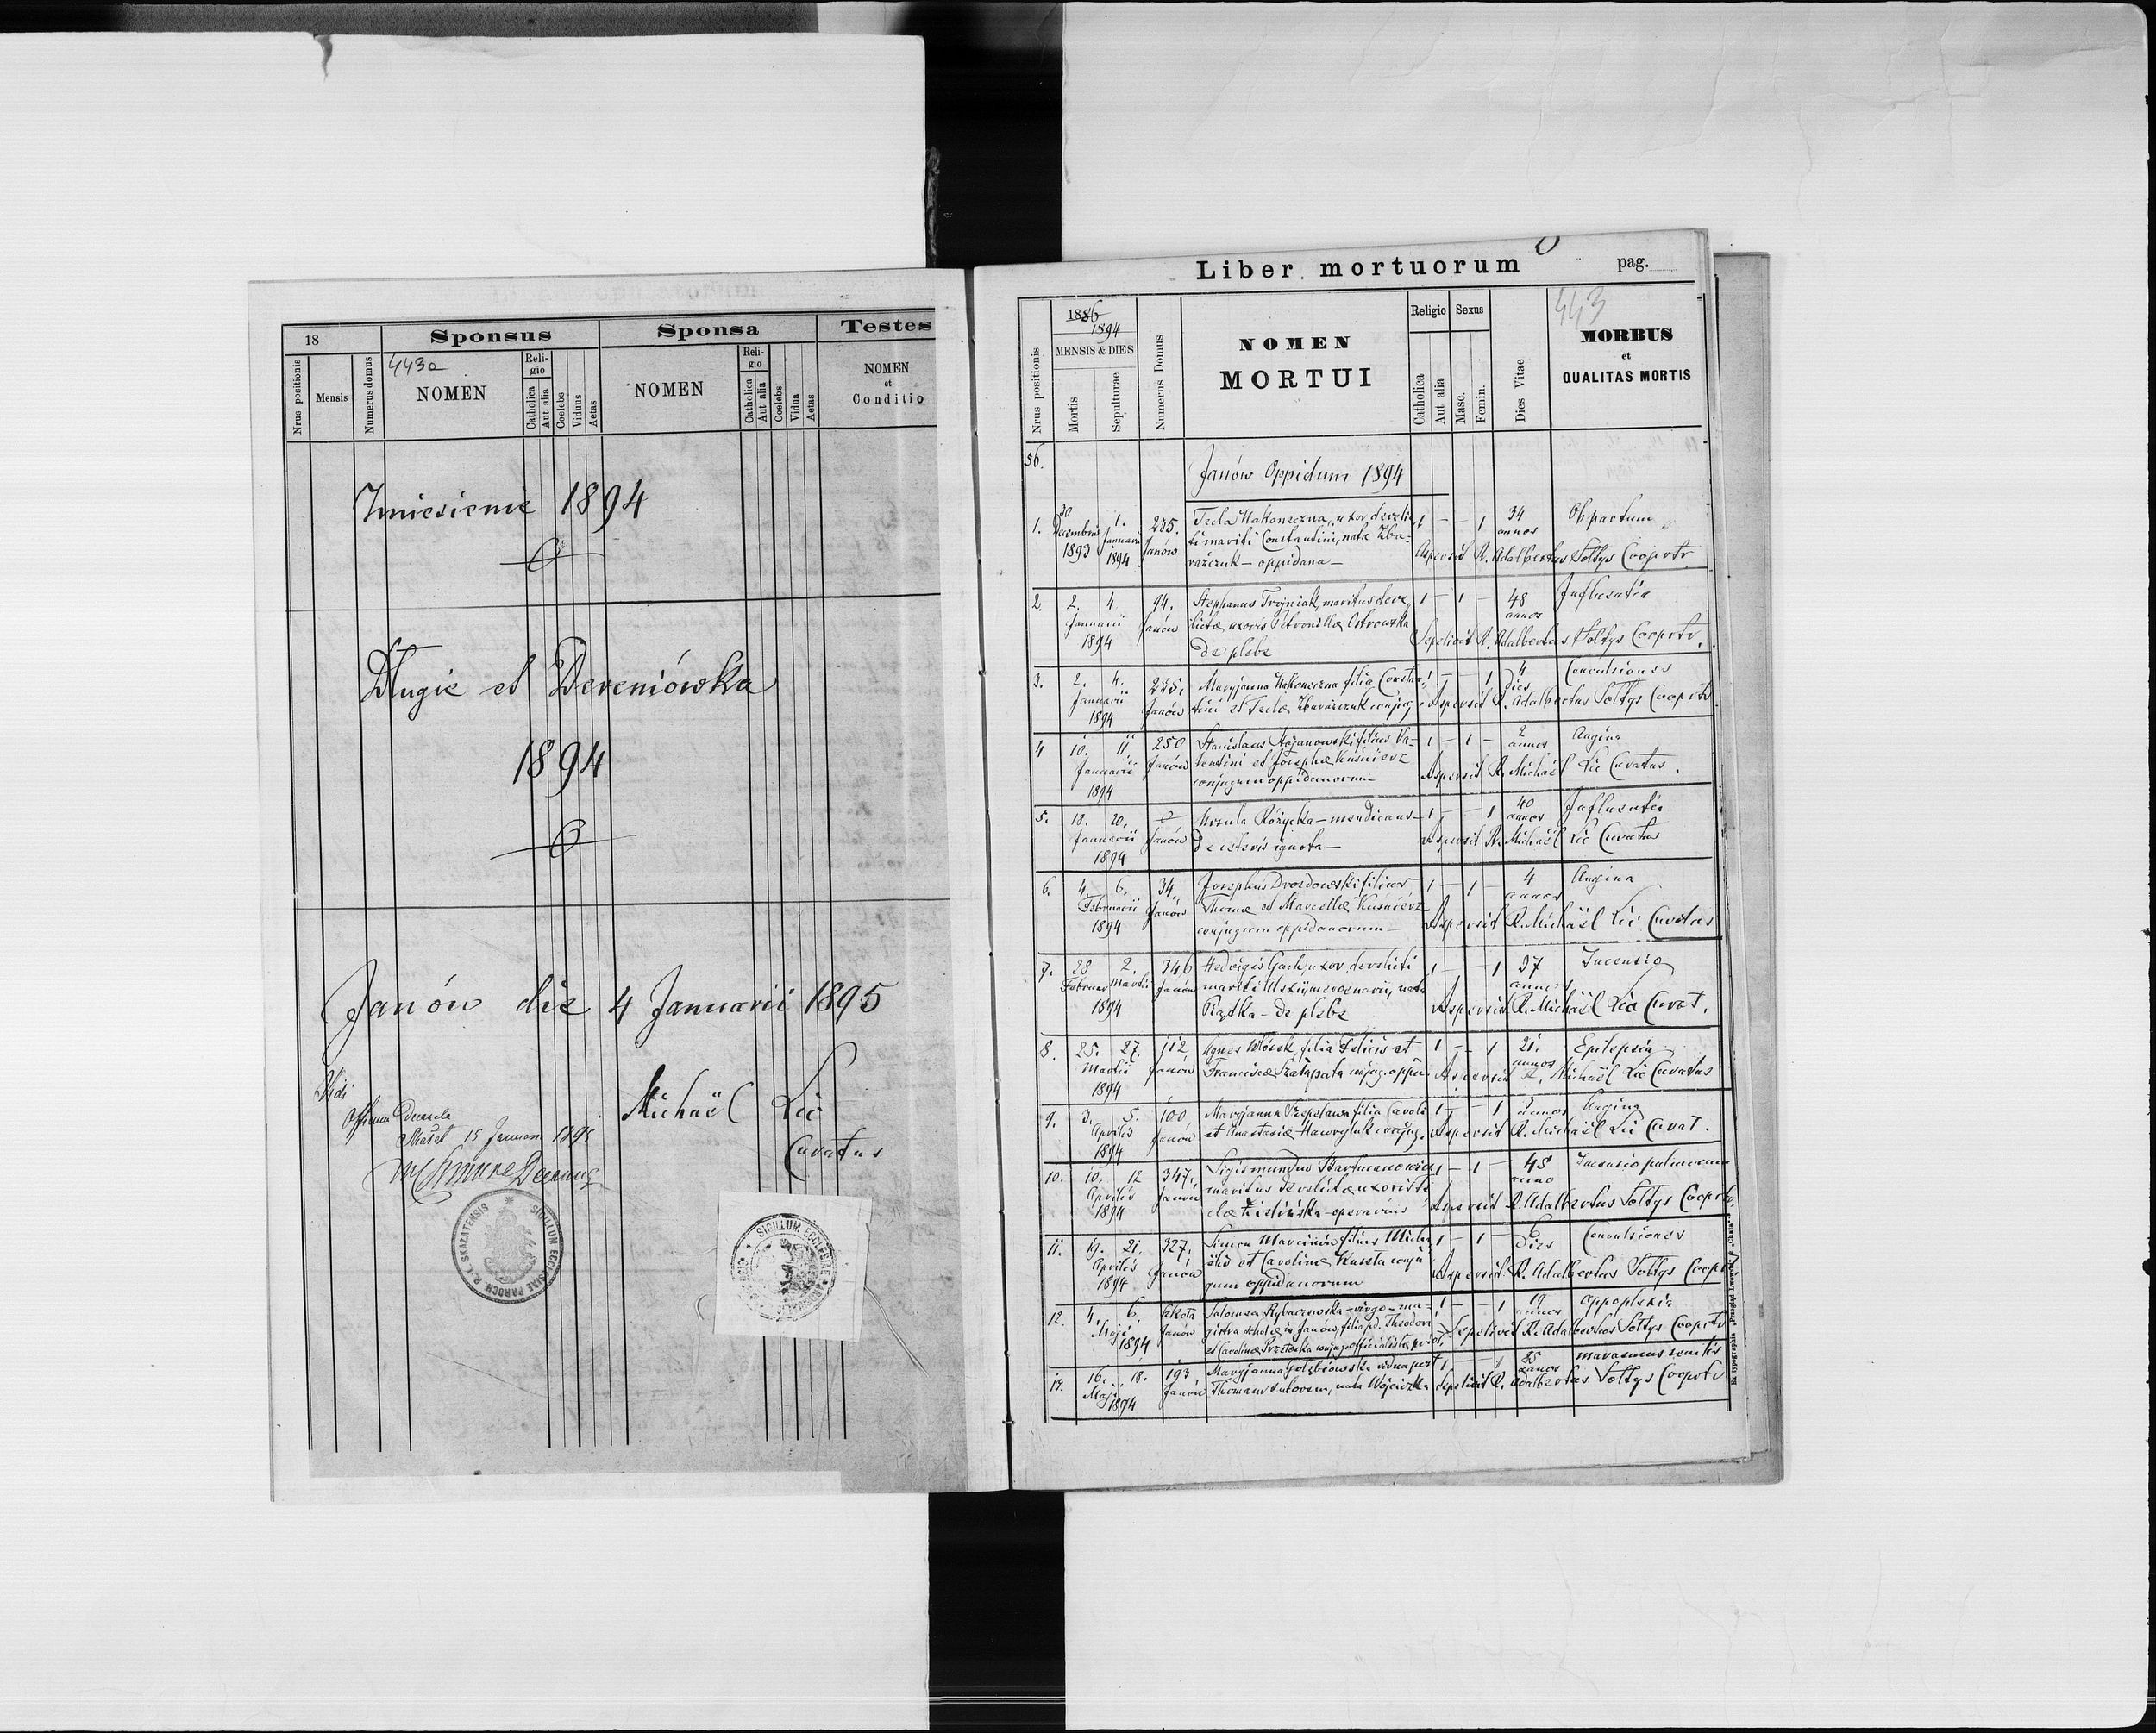 18
Sponsus
Sponsa
Testes
Nrus positionis
Mensis
Numerus domus
443a
NOMEN
Religio
Catholica
Aut alia
Coelebs
Viduus
Aetas
NOMEN
Religio
Catholica
Aut alia
Coelebs
Vidua
Aetas
NOMEN
et
Conditio
Zniesienie 1894
Długie et Dereniówka
1894
Janów die 4 Januarii 1895
Michaël Lic
Curatus
Vidi
Skałat 15 Januar 1895
SIGILLUM ECCLESIAE PAROCH R. L. SKALATENSIS
SIGILLUM ECCLESIAE
Liber mortuorum
pag.
443
Nrus positionis
1886
1894
MENSIS & DIES
Mortis
Sepulturae
Numerus Domus
NOMEN
MORTUI
Religio
Catholica
Aut alia
Sexus
Masc.
Femin.
Dies Vitae
MORBUS
et
QUALITAS MORTIS
56.
Janów Oppidum 1894
1. 30 1. 235. Tecla Hakoneczna, uxor derelic 1 — — 1 34 Ob partum
Decembris Januarii Janów ti mariti Constantini, nata Zba- annos
1893 1894 rażczuk — oppidana — Aspersit R. Adalbertus Sołtys Cooprtr.
2. 2. 4. 94. Stephanus Trojniak, maritus dere 1 — 1 — 48 Influentia
Januarii Janów lictae uxoris Petronillae Ostrowska annos
1894 de plebe Sepelivit R. Adalbertus Sołtys Cooprtr.
3. 2. 4. 235. Maryjanna Hakoneczna filia Constan 1 — — 1 4 Convulsiones
Januarii Janów tini et Teclae Zbarażczuk conjug. dies
1894 Aspersit R. Adalbertus Sołtys Cooprtr
4 10. 11 250 Stanislaus Stojanowski filius Va- 1 — 1 — 2 Angina
Januarii Janów lentini et Josephae Kuśnierz annos
1894 conjugum oppidanorum Aspersit R. Michaël Lic Curatus.
5. 18. 20. Janów Ursula Różycka — mendicans — 1 — — 1 40 Influentia
Januarii de ceteris ignota — annos
1894 Aspersit R. Michaël Lic Curatus
6. 4. 6. 34. Josephus Drozdowski filius 1 — 1 — 4 Angina
Februarii Janów Thomae et Marcellae Kuśnierz annos
1894 conjugum oppidanorum — Aspersit R. Michaël Lic Curatus
7. 28 2. 346 Hedvigis Gach, uxor derelicti 1 — — 1 37 Incensio
Februar Martii Janów mariti nata annos
1894 Piątka — de plebe Aspersit R. Michaël Lic Curat.
8. 25. 27. 112 Agnes Włosek, filia Felicis et 1 — — 1 21. Epilepsia
Martii Janów Franciscae Szałapata conjug. oppi annos
1894 Aspersit R. Michaël Lic Curatus
9. 3. 5. 100 Maryjanna filia Caroli 1 — — 1 annos Angina
Aprilis Janów et Anastasiae Hawryluk conjug. Aspersit R. Michaël Lic Curat.
1894
10. 10. 12 347. Sigismundus Hartmanowicz 1 — 1 — 45 Incensio pulmonum
Aprilis Janów maritus derelictae uxoris anno
1894 Zielińska — operarius Aspersit R. Adalbertus Sołtys Cooprtr
11. 19. 21. 327. Simon Marcinów filius Micha 1 — 1 — 6 Convulsiones
Aprilis Janów ëlis et Carolinae Kuszta conju dies
1894 gum oppidanorum Aspersit R. Adalbertus Sołtys Cooprt
12. 4. 6. szkoła Salomea Rybaczewska — virgo — ma- 1 — — 1 19 Appoplexia
Maji Janów gistra scholae in Janów, filia pd. Theodori annos
1894 et Carolinae Sepelivit R. Adalbertus Sołtys Cooprtr
13. 16. 18. 193 Maryjanna Gołębiowska vidua post 1 — — 1 85 marasmus senilis
Maji Janów Thomam nata Wójcicka annos
1894 Sepelivit R. Adalbertus Sołtys Cooprtr
Ex typographia „Przegląd Lwowski"